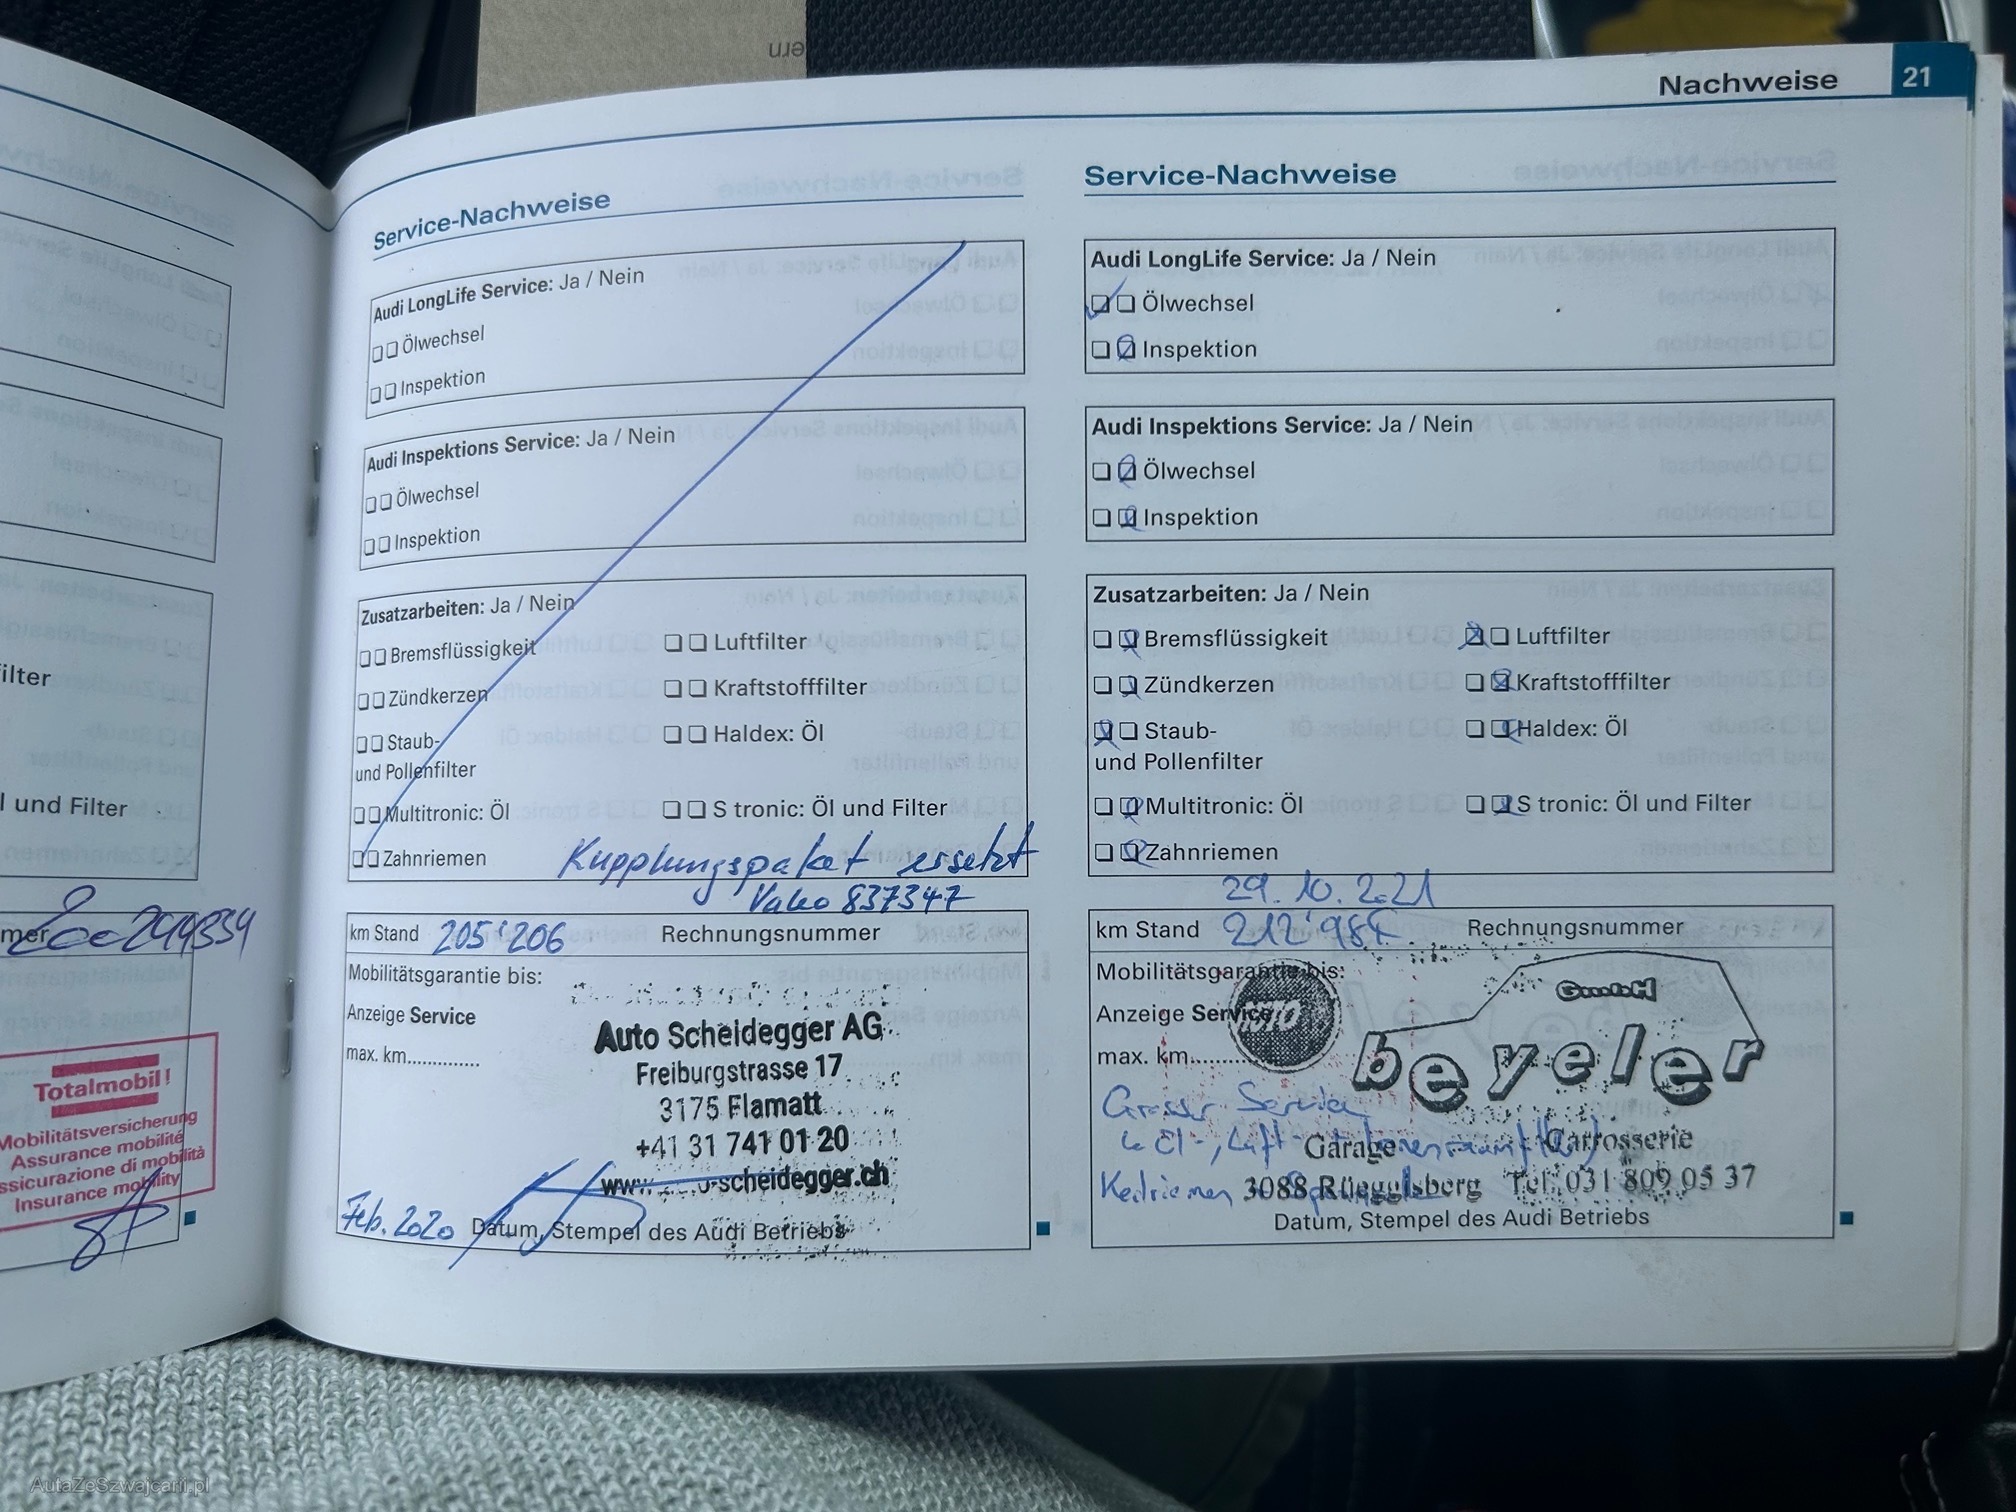 ern
Nachweise 21
ilter
l und Filter
mer
Totalmobil!
Mobilitätsversicherung
Assurance mobilité
ssicurazione di mobilità
Insurance mobility
Service-Nachweise
Audi LongLife Service: Ja / Nein
Ölwechsel
Inspektion
Audi Inspektions Service: Ja / Nein
Ölwechsel
Inspektion
Zusatzarbeiten: Ja / Nein
Bremsflüssigkeit Luftfilter
Zündkerzen Kraftstofffilter
Staub- Haldex: Öl
und Pollenfilter
Multitronic: Öl S tronic: Öl und Filter
Zahnriemen
Kupplungspaket ersetzt
Valeo 837347
km Stand 205'206 Rechnungsnummer
Mobilitätsgarantie bis:
Anzeige Service
max. km.............
Auto Scheidegger AG
Freiburgstrasse 17
3175 Flamatt
+41 31 741 01 20
Feb. 2020
Datum, Stempel des Audi Betriebs
Service-Nachweise
Audi LongLife Service: Ja / Nein
Ölwechsel
Inspektion
Audi Inspektions Service: Ja / Nein
Ölwechsel
Inspektion
Zusatzarbeiten: Ja / Nein
Bremsflüssigkeit Luftfilter
Zündkerzen Kraftstofffilter
Staub- Haldex: Öl
und Pollenfilter
Multitronic: Öl S tronic: Öl und Filter
Zahnriemen
29.10.2021
km Stand Rechnungsnummer
Mobilitätsgarantie bis:
Anzeige Service
max. km.............
GmbH
beyeler
Grosser Service
Garage Carrosserie
Keilriemen
3088 Rüeggisberg Tel. 031 809 05 37
Datum, Stempel des Audi Betriebs
AutaZeSzwajcarii.pl